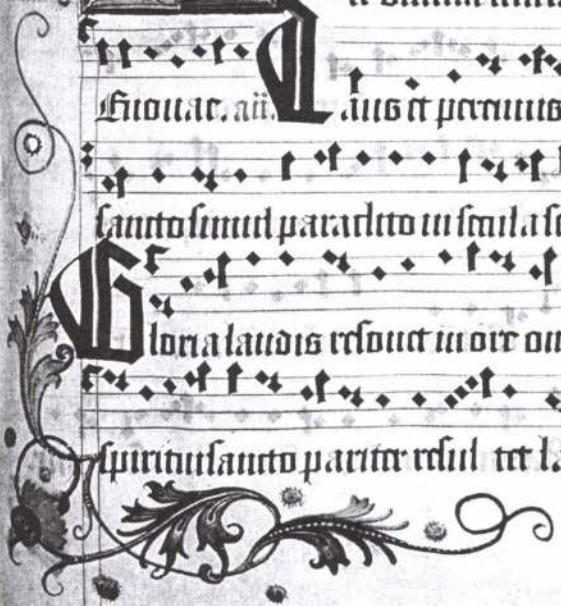 Euouae. an. Laus et perennis
sancto simul paraclito in secula se
Gloria laudis resonet in ore om
spirituisancto pariter resul tet la